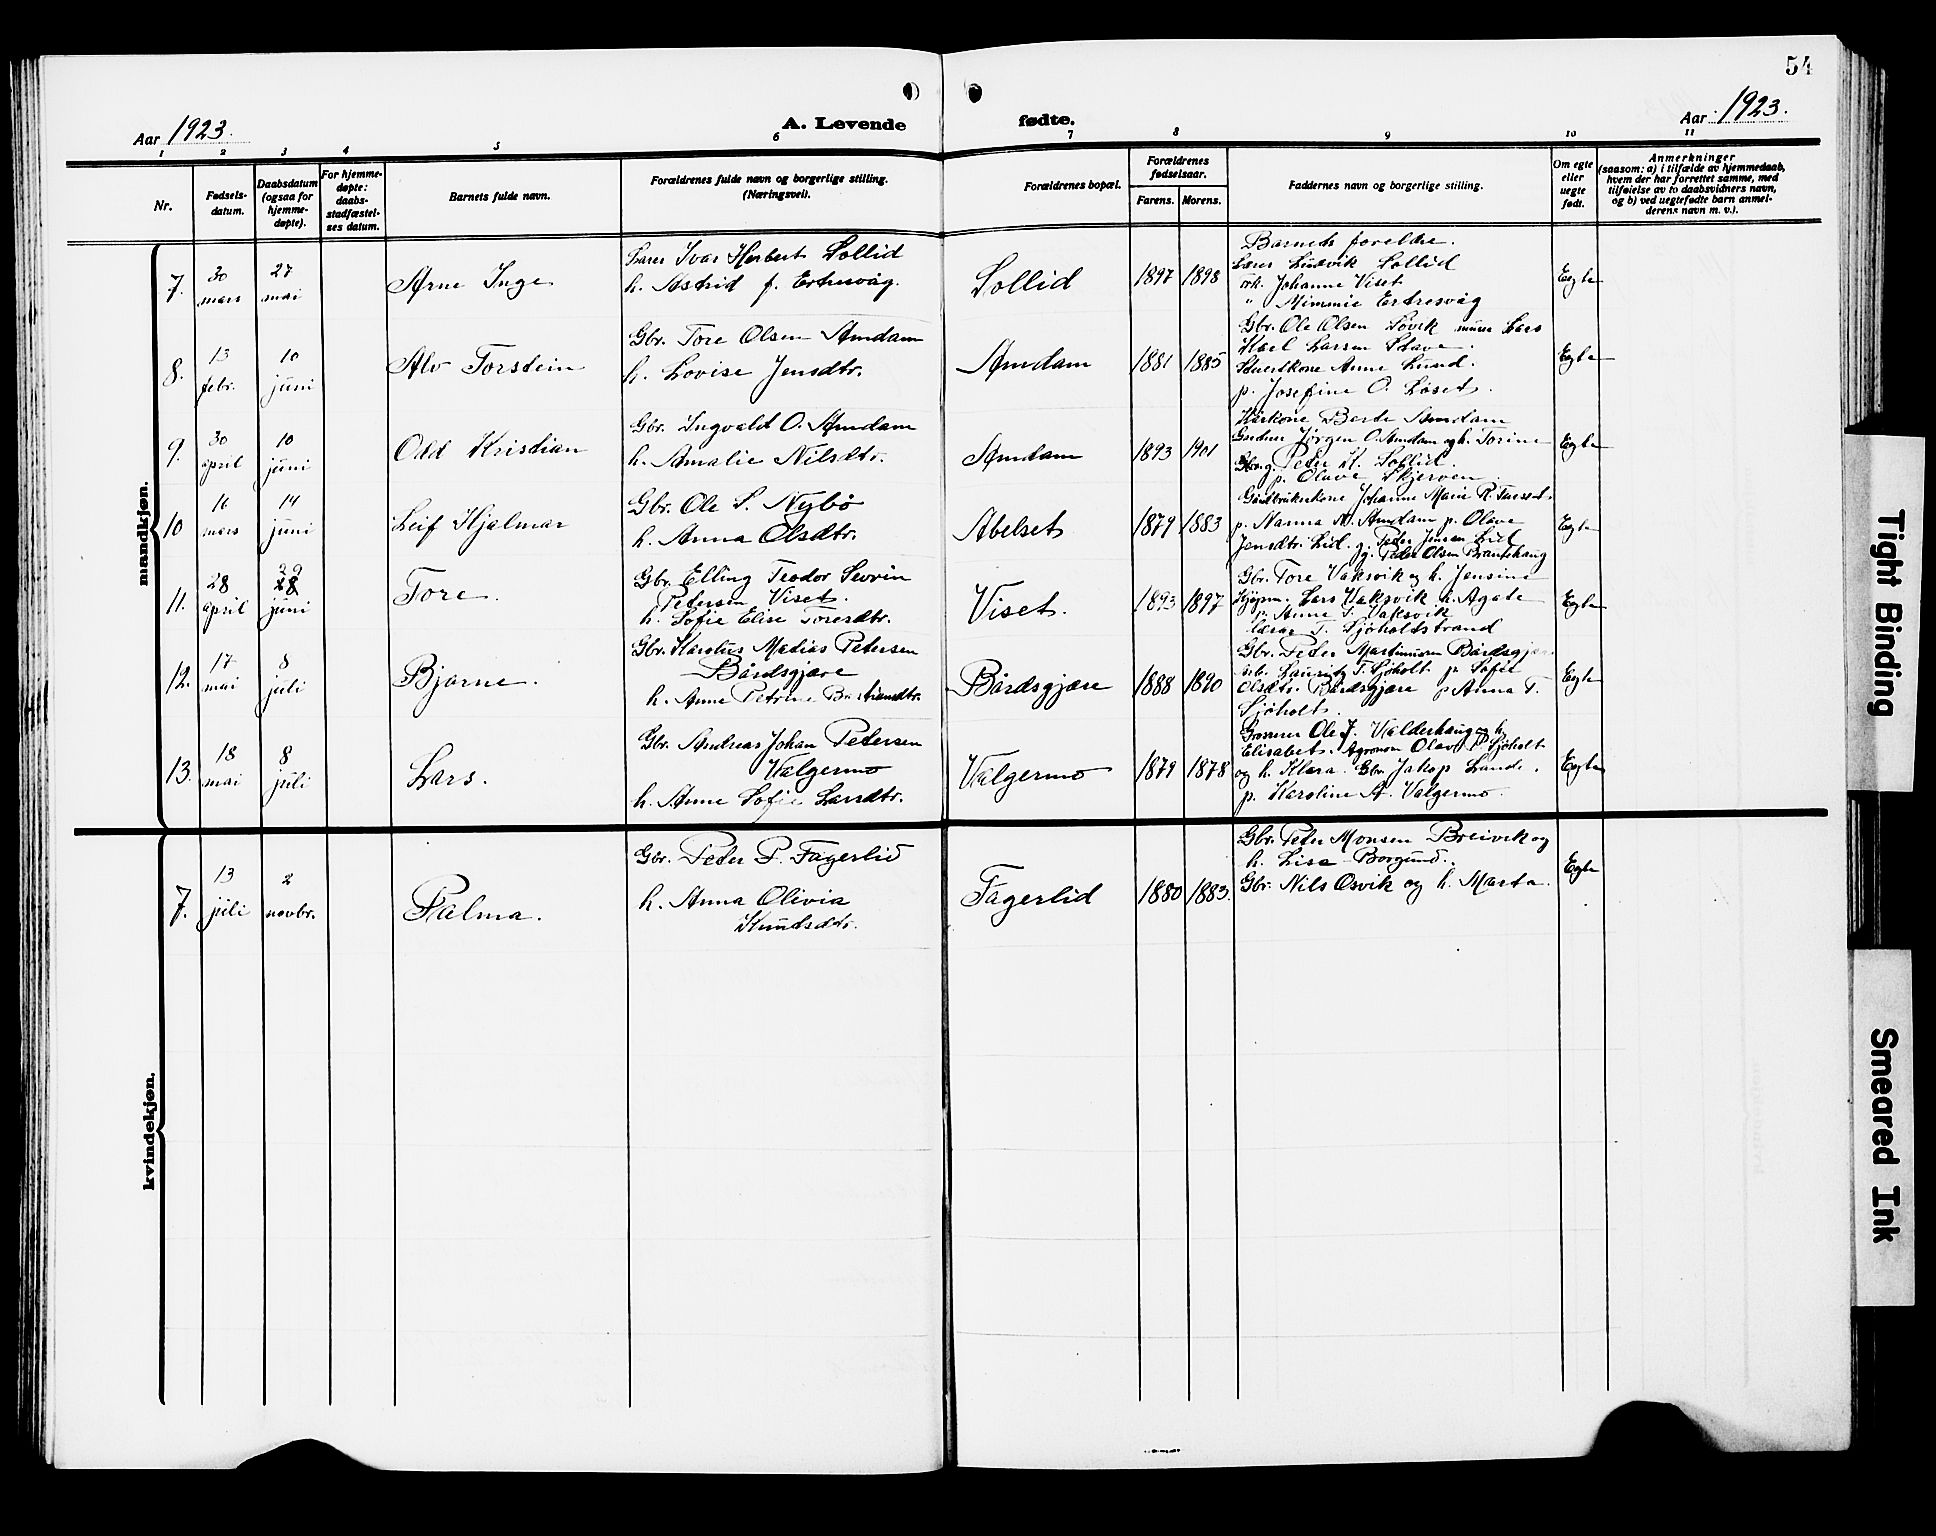 54
Aar 1923.
A. Levende fødte.
Aar 1923.
1 2 3 4 5 6 7 8 9 10 11
Nr.
Fødsels-
datum.
Daabsdatum
(ogsaa for
hjemme-
døpte).
For hjemme-
døpte:
daabs-
stadfæstel-
ses datum.
Barnets fulde navn.
Forældrenes fulde navn og borgerlige stilling.
(Næringsvei).
Forældrenes bopæl.
Forældrenes
fødselsaar.
Farens. Morens.
Faddernes navn og borgerlige stilling.
Om egte
eller
uegte
født.
Anmerkninger
(saasom: a) i tilfælde av hjemmedaab,
hvem der har forrettet samme, med
tilføielse av to daabsvidners navn,
og b) ved uegtefødte barn anmel-
derens navn m. v.).
mandkjøn.
7.
30
mars
27
mai
Arne Inge
Lærer Ivar Herbert Sollid
h. Astrid f. Ertresvåg.
Sollid
1897 1898
Barnets foreldre.
Lærer Ludvik Sollid
Frk. Johanne Viset
" Mimmie Ertresvåg
Egte
8.
13
febr.
10
juni
Alv Torstein
Gbr. Tore Olsen Amdam
h. Lovise Jensdtr.
Amdam
1881 1885
Gbr. Ole Olsen Løvik murer Lars
Karl Larsen Stave.
Stuertkone Anne Lund.
p. Josefine O. Løset.
Egte
9.
30
april
10
juni
Odd Kristian
Gbr. Ingvald O. Amdam
h. Amalie Nilsdtr.
Amdam
1893 1901
Kårkone Berte Amdam
Jørgen O. Amdam og h. Torine
g. Peder K. Sollid.
p. Olave Skjerven.
Egte
10
16
mars
14
juni
Leif Hjalmar
Gbr. Ole S. Nybø
h. Anna Olsdtr.
Abelset
1879 1883
Gårdbrukerkone Johanne Marie R.
p. Nanna M. Amdam p. Olave
Jensdtr. Lid. g. Peder Jensen Lid
g. Peder Olsen Brautehaug
Egte
11.
28
april
29
28
juni
Tore.
Gbr. Elling Teodor Sevrin
Petersen Viset.
h. Sofie Elise Toresdtr.
Viset.
1893 1897
Gbr. Tore Vaksvik og h. Jensine
Kjøpm. Lars Vaksvik h. Agate
p. Anne T. Vaksvik
lærer T. Sjøholdstrand
Egte
12.
17
mai
8
juli
Bjarne.
Gbr. Karolus Matias Petersen
Bårdsgjære
h. Anne Petrine
Bårdsgjære
1888 1890
Gbr. Peder Martinussen Bårdsgjær
Lauritz T. Sjøholt p. Sofie
Olsdtr. Bårdsgjære p Anna T.
Sjøholt.
Egte
13.
18
mai
8
juli
Lars.
Gbr. Andreas Johan Petersen
Valgermo
h. Anne Sofie Larsdtr.
Valgermo
1879 1878
Grosserer Ole J. Valderhaug og h
Elisabet. Agronom Olav P Sjøholt
og h. Klara. Gbr. Jakop Lande.
p. Karoline A. Valgermo.
Egte
kvindekjøn.
7.
13
juli
2
novbr.
Palma.
Gbr. Peder P. Fagerlid
h. Anna Olivia
Knudsdtr.
Fagerlid
1880 1883.
Gbr. Peter Monsen Breivik og
h. Lisa Borgund.
Gbr. Nils Osvik og h. Marta.
Egte
Tight Binding
Smeared Ink